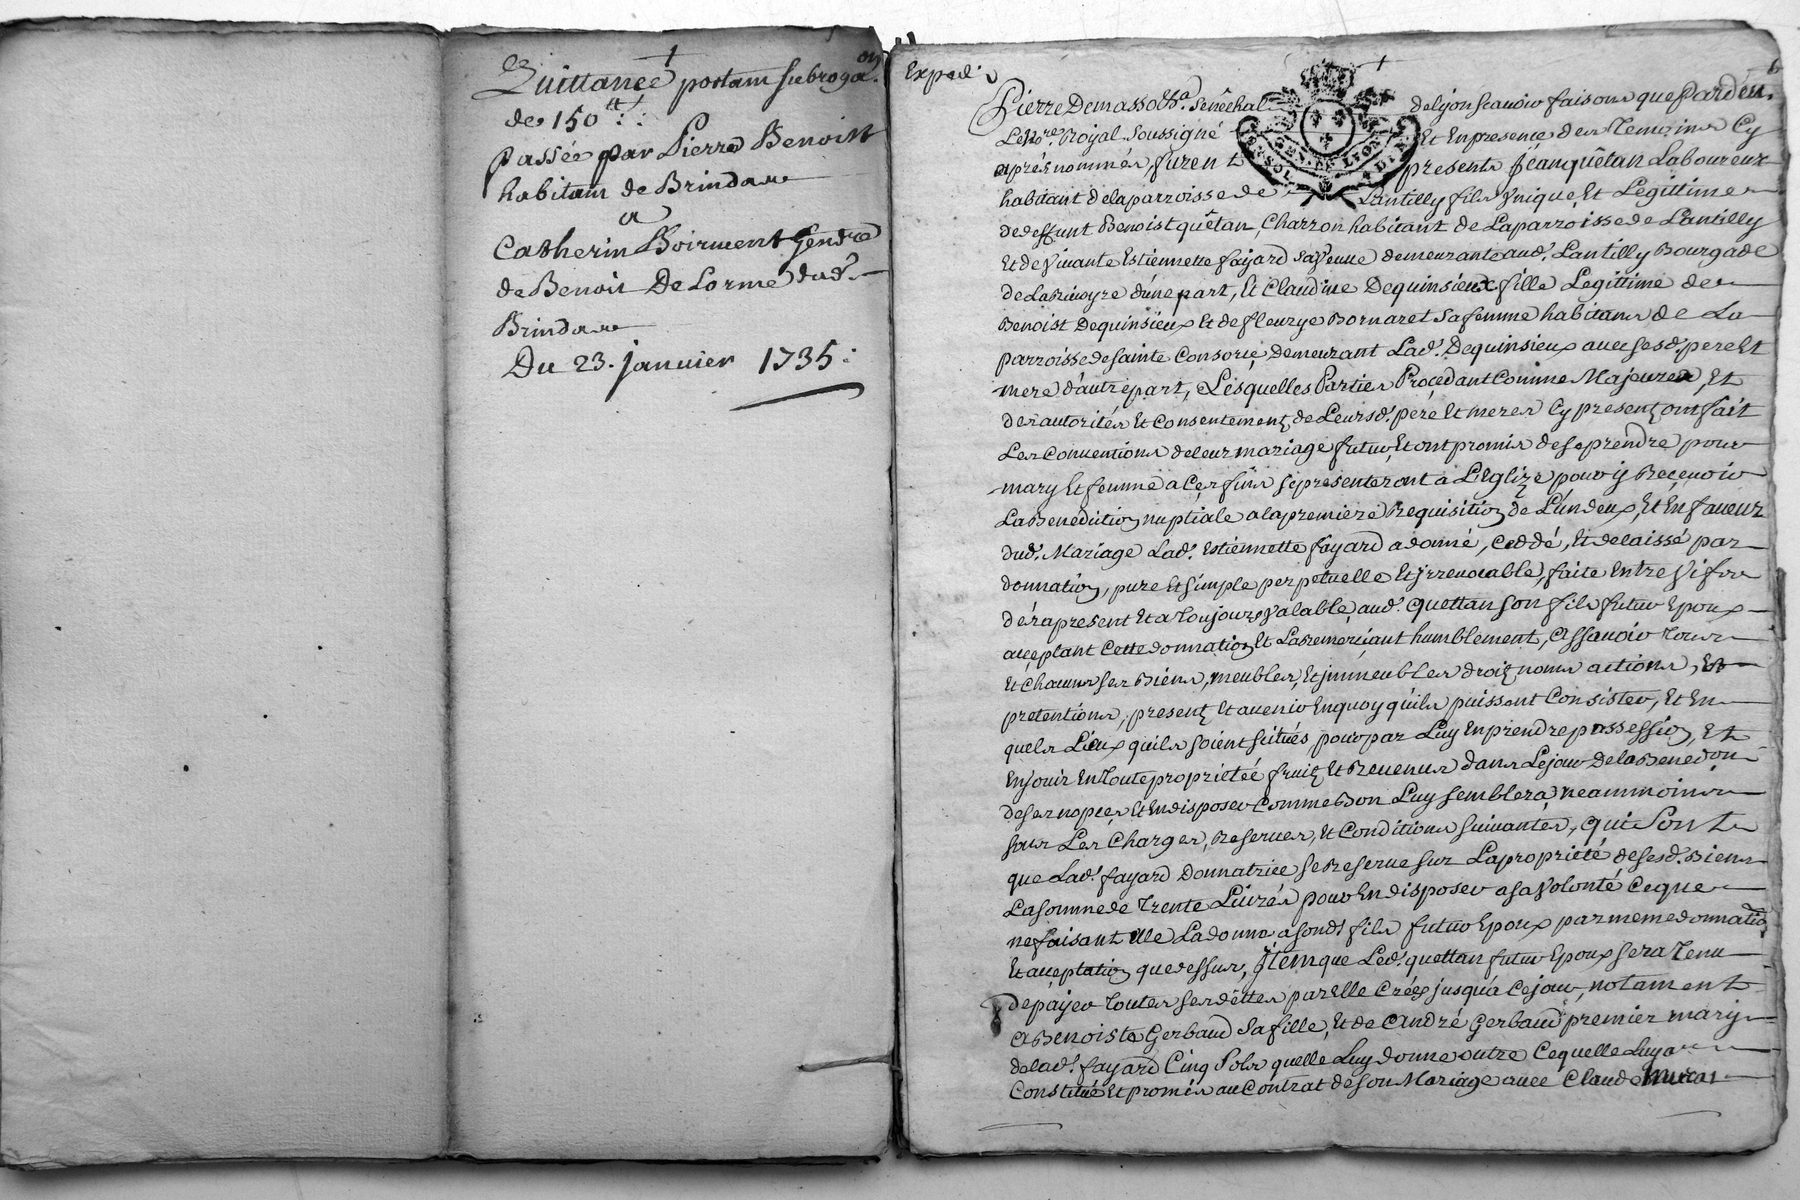 Quittance portant subroga.on
de 150 tt :
Passée par Pierre Benoist
habitant de Brindas
a
Catherin Boirment Gendre
de Benoit De Lorme dud.
Brindas
Du 23. janvier 1735 :
Exped.
Pierre Demasso Sénéchal de lyon scavoir faisons que Pardev.
Le No.re Royal Soussigné Et En presence des Temoins Cy
aprés nommés, furent presents Jean quêtan Laboureur
habitant de la parroisse de Lantilly fils Unique, Et Legittime
de deffunt Benoist quêtan, Charron habitant de La parroisse de Lantilly
Et de Vivante Estiennette fayard sa Veuve demeurante aud. Lantilly Bourgade
de La d'une part, Et Claudine Dequinsieux fille Legittime de
Benoist Dequinsieux Et de fleurye Bornaret sa femme habitans de La
parroisse de Sainte Consorce, demeurant Lad. Dequinsieux avec sesd. pere Et
mere d'autre part, Lesquelles Parties Procedant Comme Majeures, Et
des autorités Et Consentement de Leursd. peré Et meres Cy present ont fait
Les Conventions de leur mariage futur, Et ont promis de se prendre pour
mary Et femme a Ces fins se presenteront à L'Eglize pour y Recevoir
La Benediction nuptiale a la premiere Requisition de L'un deux, Et En faveur
dud. Mariage Lad. Estiennette fayard a donné, Ceddé, Et delaissé par
donnation, pure Et simple perpetuelle Et jrrevocable, faite Entre Vifs
dés a present Et a Toujours Valable, aud. quettan son fils futur Epoux
acceptant Cette donnation Et La Remerciant humblement, Assavoir Tous
Et Chacuns ses Biens, meubles, Et jmmeubles droits noms actions, Et
pretentions, present Et avenir En quoy qu'ils puissent Consister, Et En
quels Lieux quils soient scitués pour par Luy En prendre possession, Et
En jouir En Toute proprietéé fruits Et Revenus dans Le jour De la Bened.on
de ses nopces Et En disposer Comme Bon Luy semblera, neammoins
sous Les Charges, Reserves, Et Conditions suivantes, qui Sont
que Lad. fayard Donnatrice se Reserve sur La proprieté de sesd. Biens
La somme de Trente Livrés pour En disposer a sa Volonté Ce que
ne faisant Elle La donne a sondt fils futur Epoux par meme donnation
Et acceptation que dessus, Jtem que Led. quettan futur Epoux sera Tenu
de payer Toutes ses dêttes par Elle Créés jusqu'a Ce jour, notament
a Benoiste Gerbaud sa fille, Et de André Gerbaud premier mary
de lad. fayard Cinq Sols quelle Luy donne outre Ce quelle Luy a
Constitué Et promis au Contrat de son Mariage avec Claude